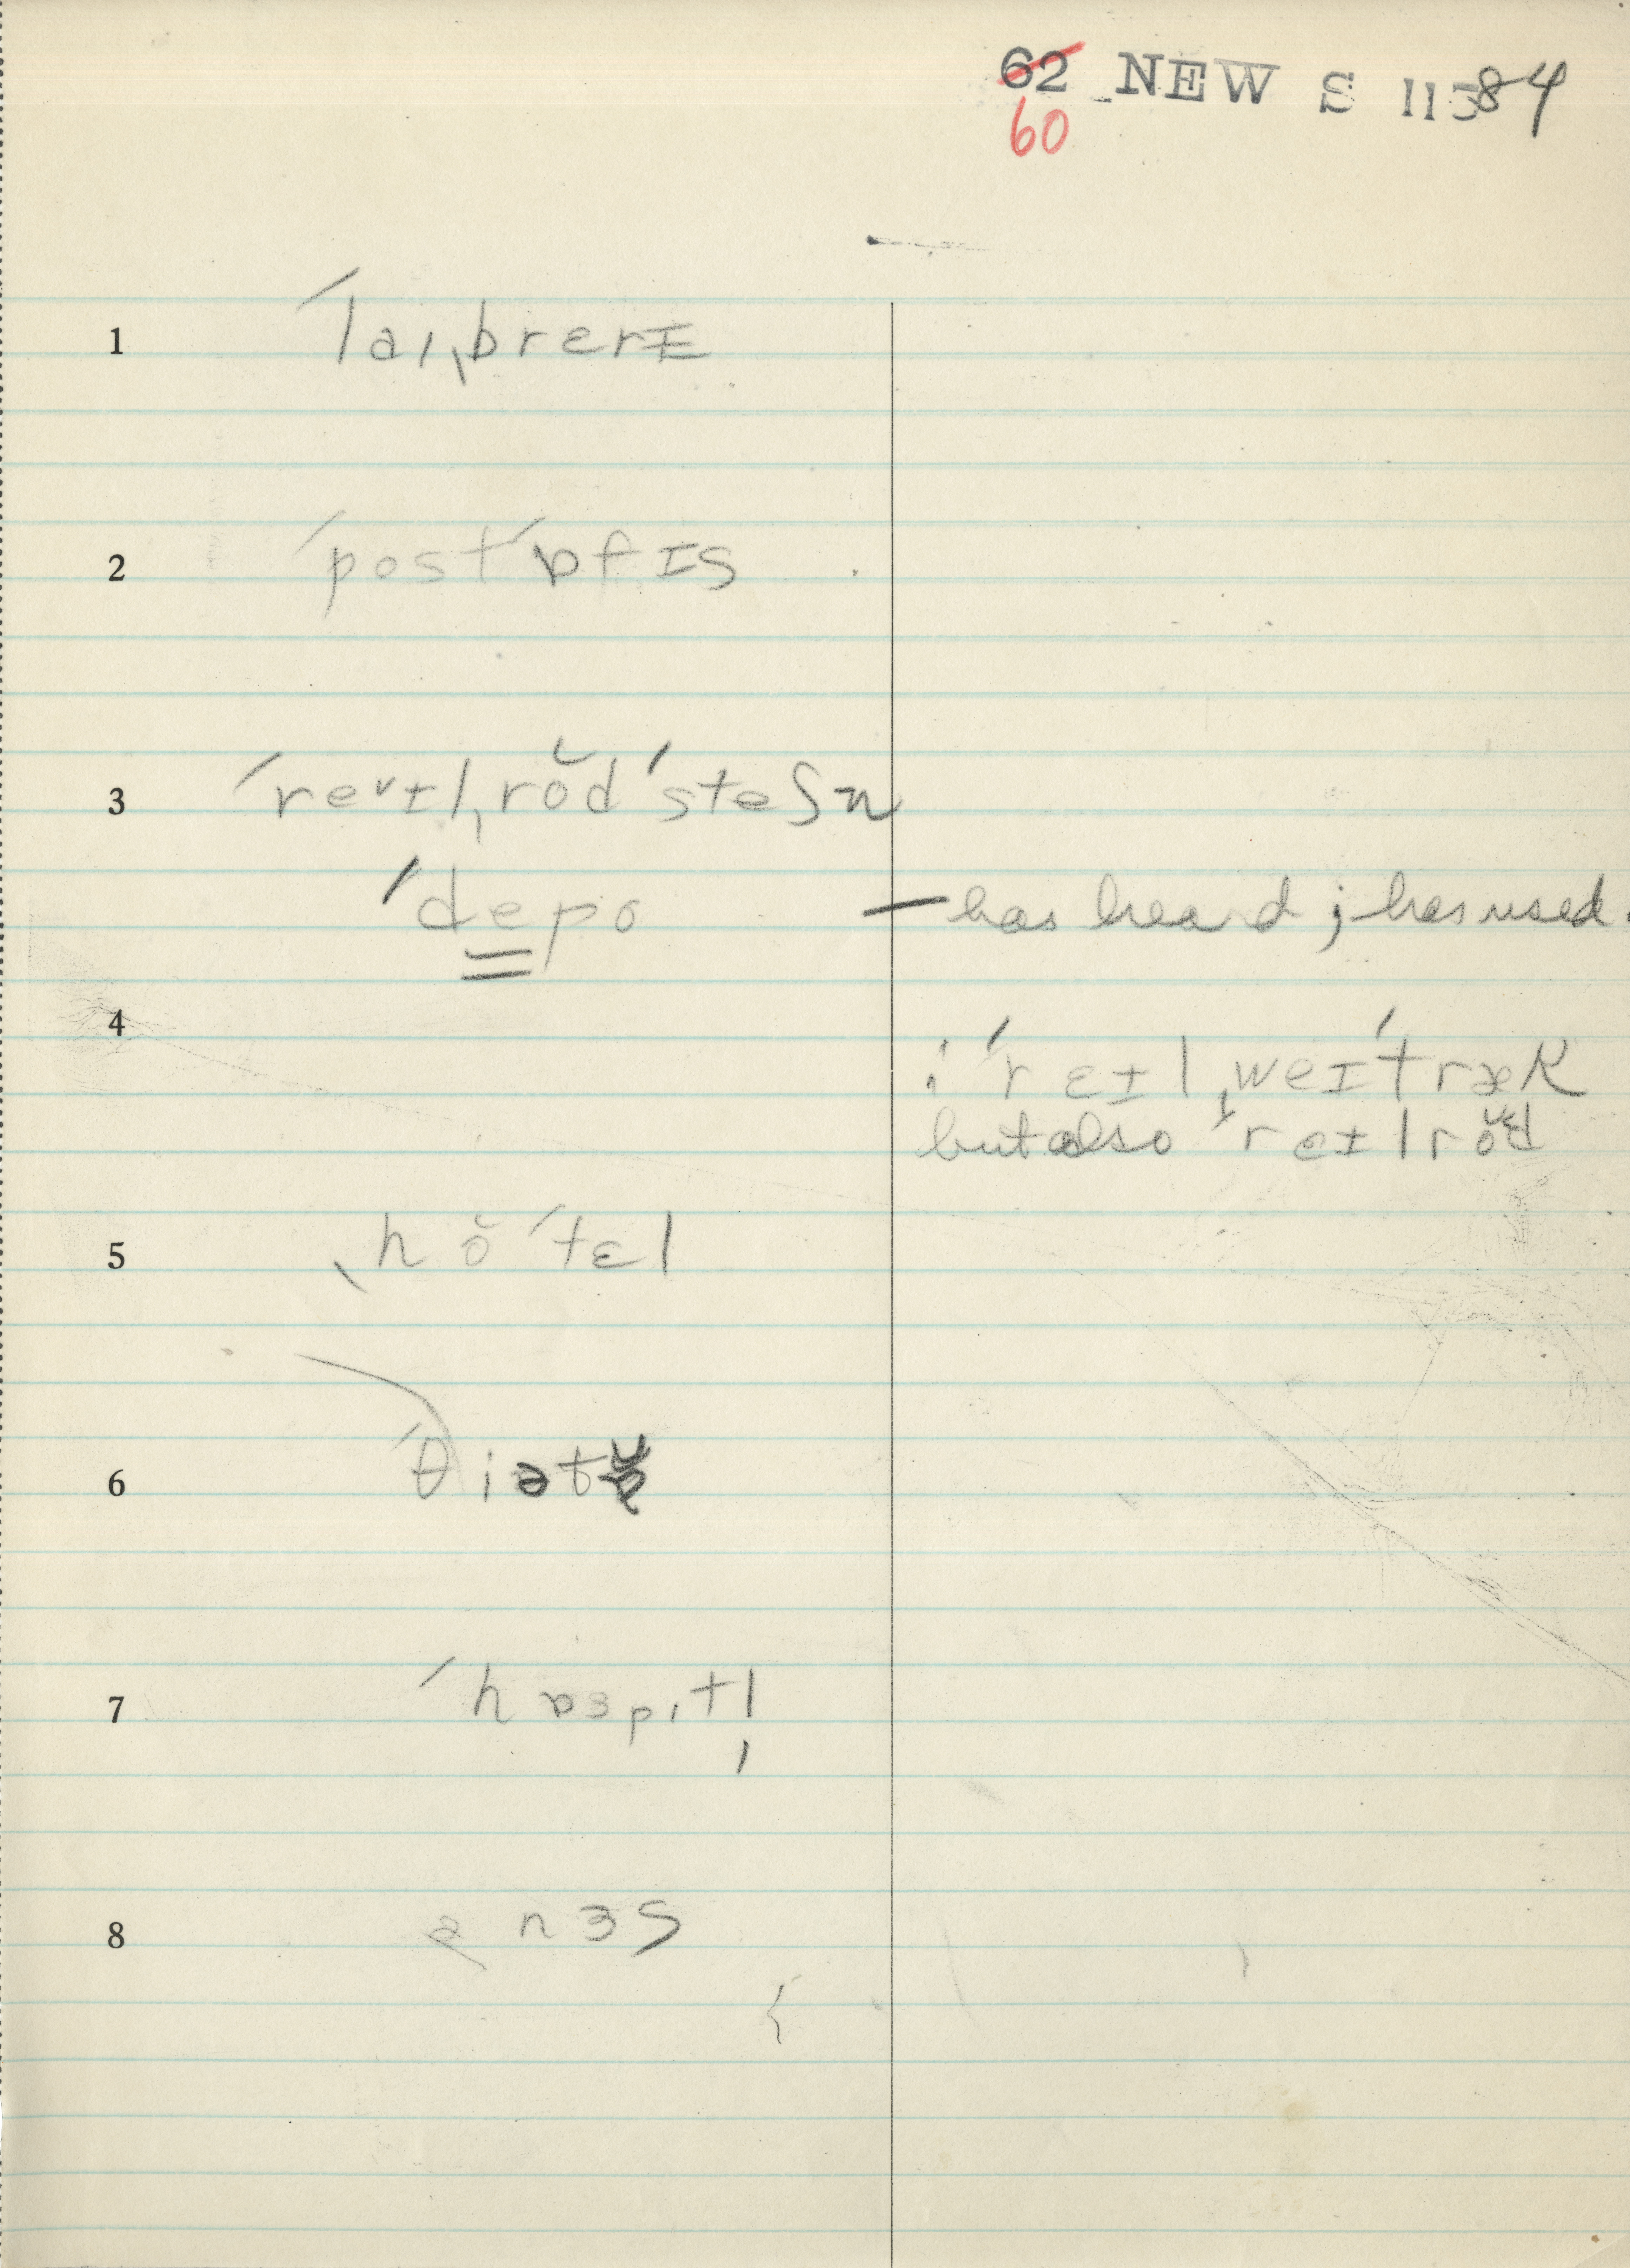 62 NEW S 11584
60
1 ˊlaɪˌbrerɪ
2 ˊpostˊɒfɪs
3 ˊreᵛɪlˌrŏdˊsteʃn
ˊdepo — has heard; has used.
4 ; ˊrɛɪlˌweɪˊtræk
but also ˊreɪlrŏd
5 ˌhŏˊtɛl
6 ˊθiət
7 ˊhɒspɪtl̩
8 ə nɜs